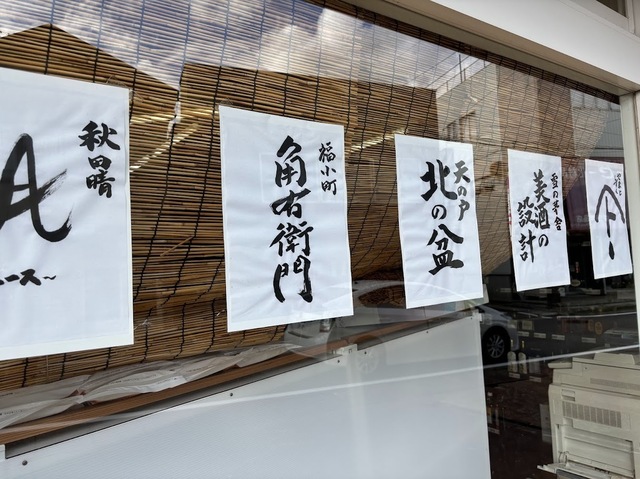 秋田晴
A
ース～
福小町
角右衛門
天の戸
北の盆
雪の茅舎
美酒の
設計